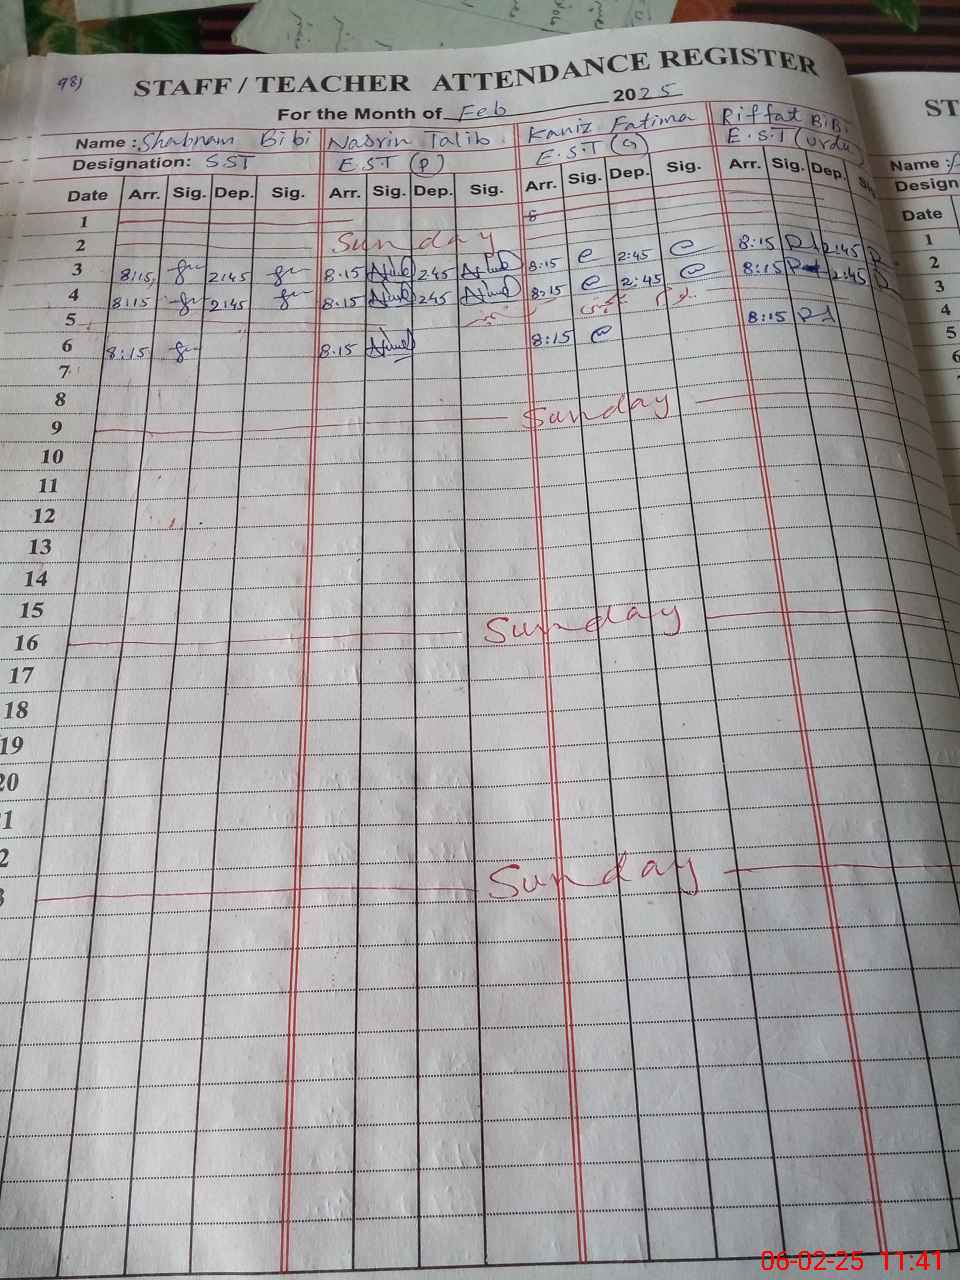 98)
STAFF / TEACHER ATTENDANCE REGISTER
For the Month of Feb 2025
Name : Shabnam Bibi Nasrin Talib Kaniz Fatima Riffat BiBi
Designation: SST E.S.T (P) E.S.T (G) E.S.T (Urdu
Date Arr. Sig. Dep. Sig. Arr. Sig. Dep. Sig. Arr. Sig. Dep. Sig. Arr. Sig. Dep.
1
2 Sunday
3 8:15 2:45 8:15 2:45 8:15 2:45 8:15 2:45
4 8:15 2:45 8:15 2:45 8:15 2:45 8:15 2:45
5
6 8:15 8:15 8:15 8:15
7
8
9 Sunday
10
11
12
13
14
15
16 Sunday
17
18
19
20
1
2
3 Sunday
ST
Name :
Design
Date
1
2
3
4
5
6
06-02-25 11:41